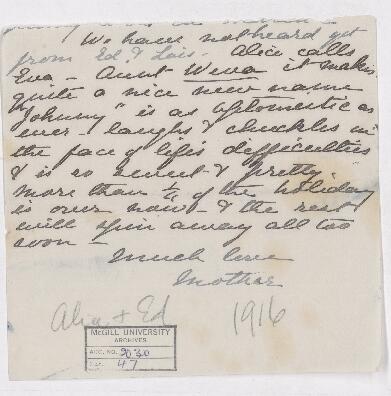 We have not heard yet
from Ed & Lois. Alice calls
Eva - Aunt Weva it makes
quite a nice new name
"Johnny" is as optomestic as
ever - laughs & chuckles in
the face of life's difficulties
& is so sweet & pretty
more than 1/2 of the holiday
is over now - & the rest
will spin away all too
soon -
Much love
Mother
+ Ed
1916
McGILL UNIVERSITY
ARCHIVES
ACC. NO. 2030
47